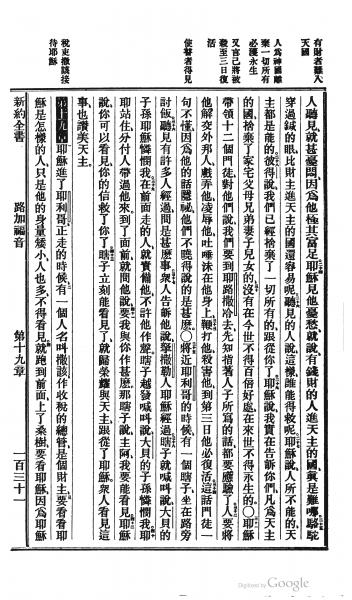 有財者難入
天國
人為神國離
棄一切所有
必獲永生
又言己將被
殺至三日復
活
使瞽者得見
稅吏撒該接
待耶穌
人聽見就甚憂悶因為他極其富足耶穌見他憂愁就說有錢財的人進天主的國眞是難哪駱駝
穿過鍼的眼比財主進天主的國還容易呢聽見的人說這樣誰能得救呢耶穌說人所不能的天
主都是能的彼得說我們已經捨棄了一切所有的跟從你了耶穌說我實在告訴你們凡為天主
的國捨棄了家宅父母兄弟妻子兒女的沒有在今世不得百倍好處在來世不得永生的〇耶穌
帶領十二個門徒對他們說我們要到耶路撒冷去先知指著人子所寫的話都要應驗了人要將
他解交外邦人戲弄他凌辱他吐唾沫在他身上鞭打他殺害他到第三日他必復活這話門徒一
句不懂因為他的話隱祕他們不曉得說的是甚麼〇將近耶利哥的時候有一個瞎子坐在路旁
討飯聽見有許多人經過問是甚麼事衆人告訴他說拏撒勒人耶穌經過瞎子就喊叫說大闢的
子孫耶穌憐憫我在前面走的人就責備他不許他作聲瞎子越發喊叫說大闢的子孫憐憫我耶
穌站住分付人帶過他來到了面前就問他說要我與你作甚麼那瞎子說主阿我要能看見耶穌
說你可以看見你的信救了你了瞎子立刻能看見了就歸榮耀與天主跟從了耶穌衆人看見這
事也讚美天主
第十九章耶穌進了耶利哥正走的時候有一個人名叫撒該作收稅的總管是個財主要看看耶
穌是怎樣的人只是他的身量矮小人也多不得看見就跑到前面上了桑樹要看耶穌因為耶穌
新約全書　路加福音　第十九章　一百三十一
Digitized by Google